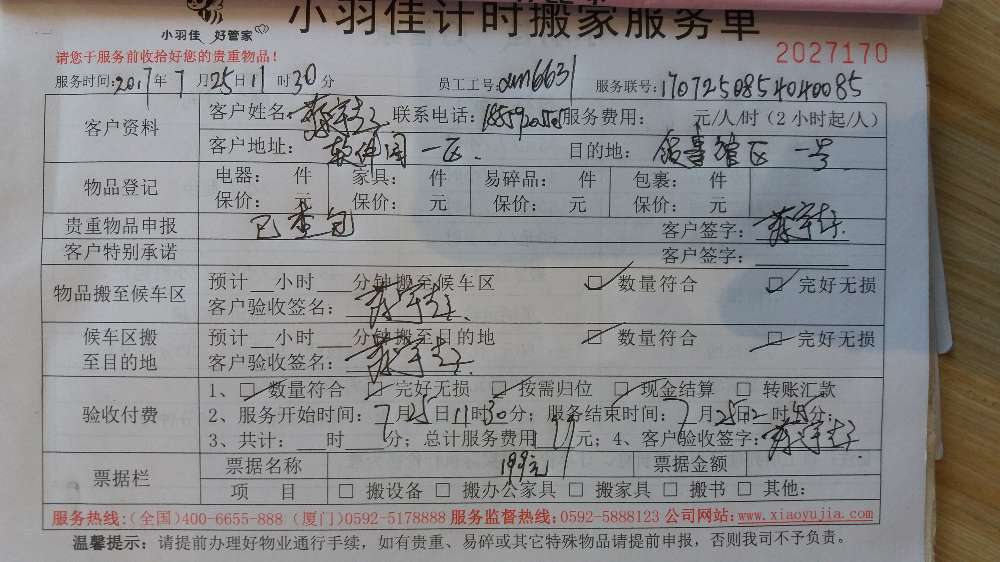 小羽佳 好管家
小羽佳计时搬家服务单
请您于服务前收拾好您的贵重物品!
2027170
服务时间:2017年7月25日11时30分 员工工号:xm6631 服务联号:1707250854040085
客户资料
客户姓名: 联系电话: 服务费用: 元/人/时(2小时起/人)
客户地址: 软件园一区. 目的地: 一号
物品登记
电器: 件 家具: 件 易碎品: 件 包裹: 件
保价: 元 保价: 元 保价: 元 保价: 元
贵重物品申报 已查包 客户签字:
客户特别承诺 客户签字:
物品搬至候车区
预计__小时___分钟搬至候车区 □ 数量符合 □ 完好无损
客户验收签名:
候车区搬至目的地
预计__小时___分钟搬至目的地 □ 数量符合 □ 完好无损
客户验收签名:
验收付费
1、□ 数量符合 □ 完好无损 □ 按需归位 □ 现金结算 □ 转账汇款
2、服务开始时间:7月25日11时30分;服务结束时间:7月25日12时 分;
3、共计:___时___分;总计服务费用199元;4、客户验收签字:
票据栏
票据名称 199元 票据金额
项 目 □ 搬设备 □ 搬办公家具 □ 搬家具 □ 搬书 □ 其他:
服务热线:(全国)400-6655-888 (厦门)0592-5178888 服务监督热线:0592-5888123 公司网站:www.xiaoyujia.com
温馨提示:请提前办理好物业通行手续,如有贵重、易碎或其它特殊物品请提前申报,否则我司不予负责。